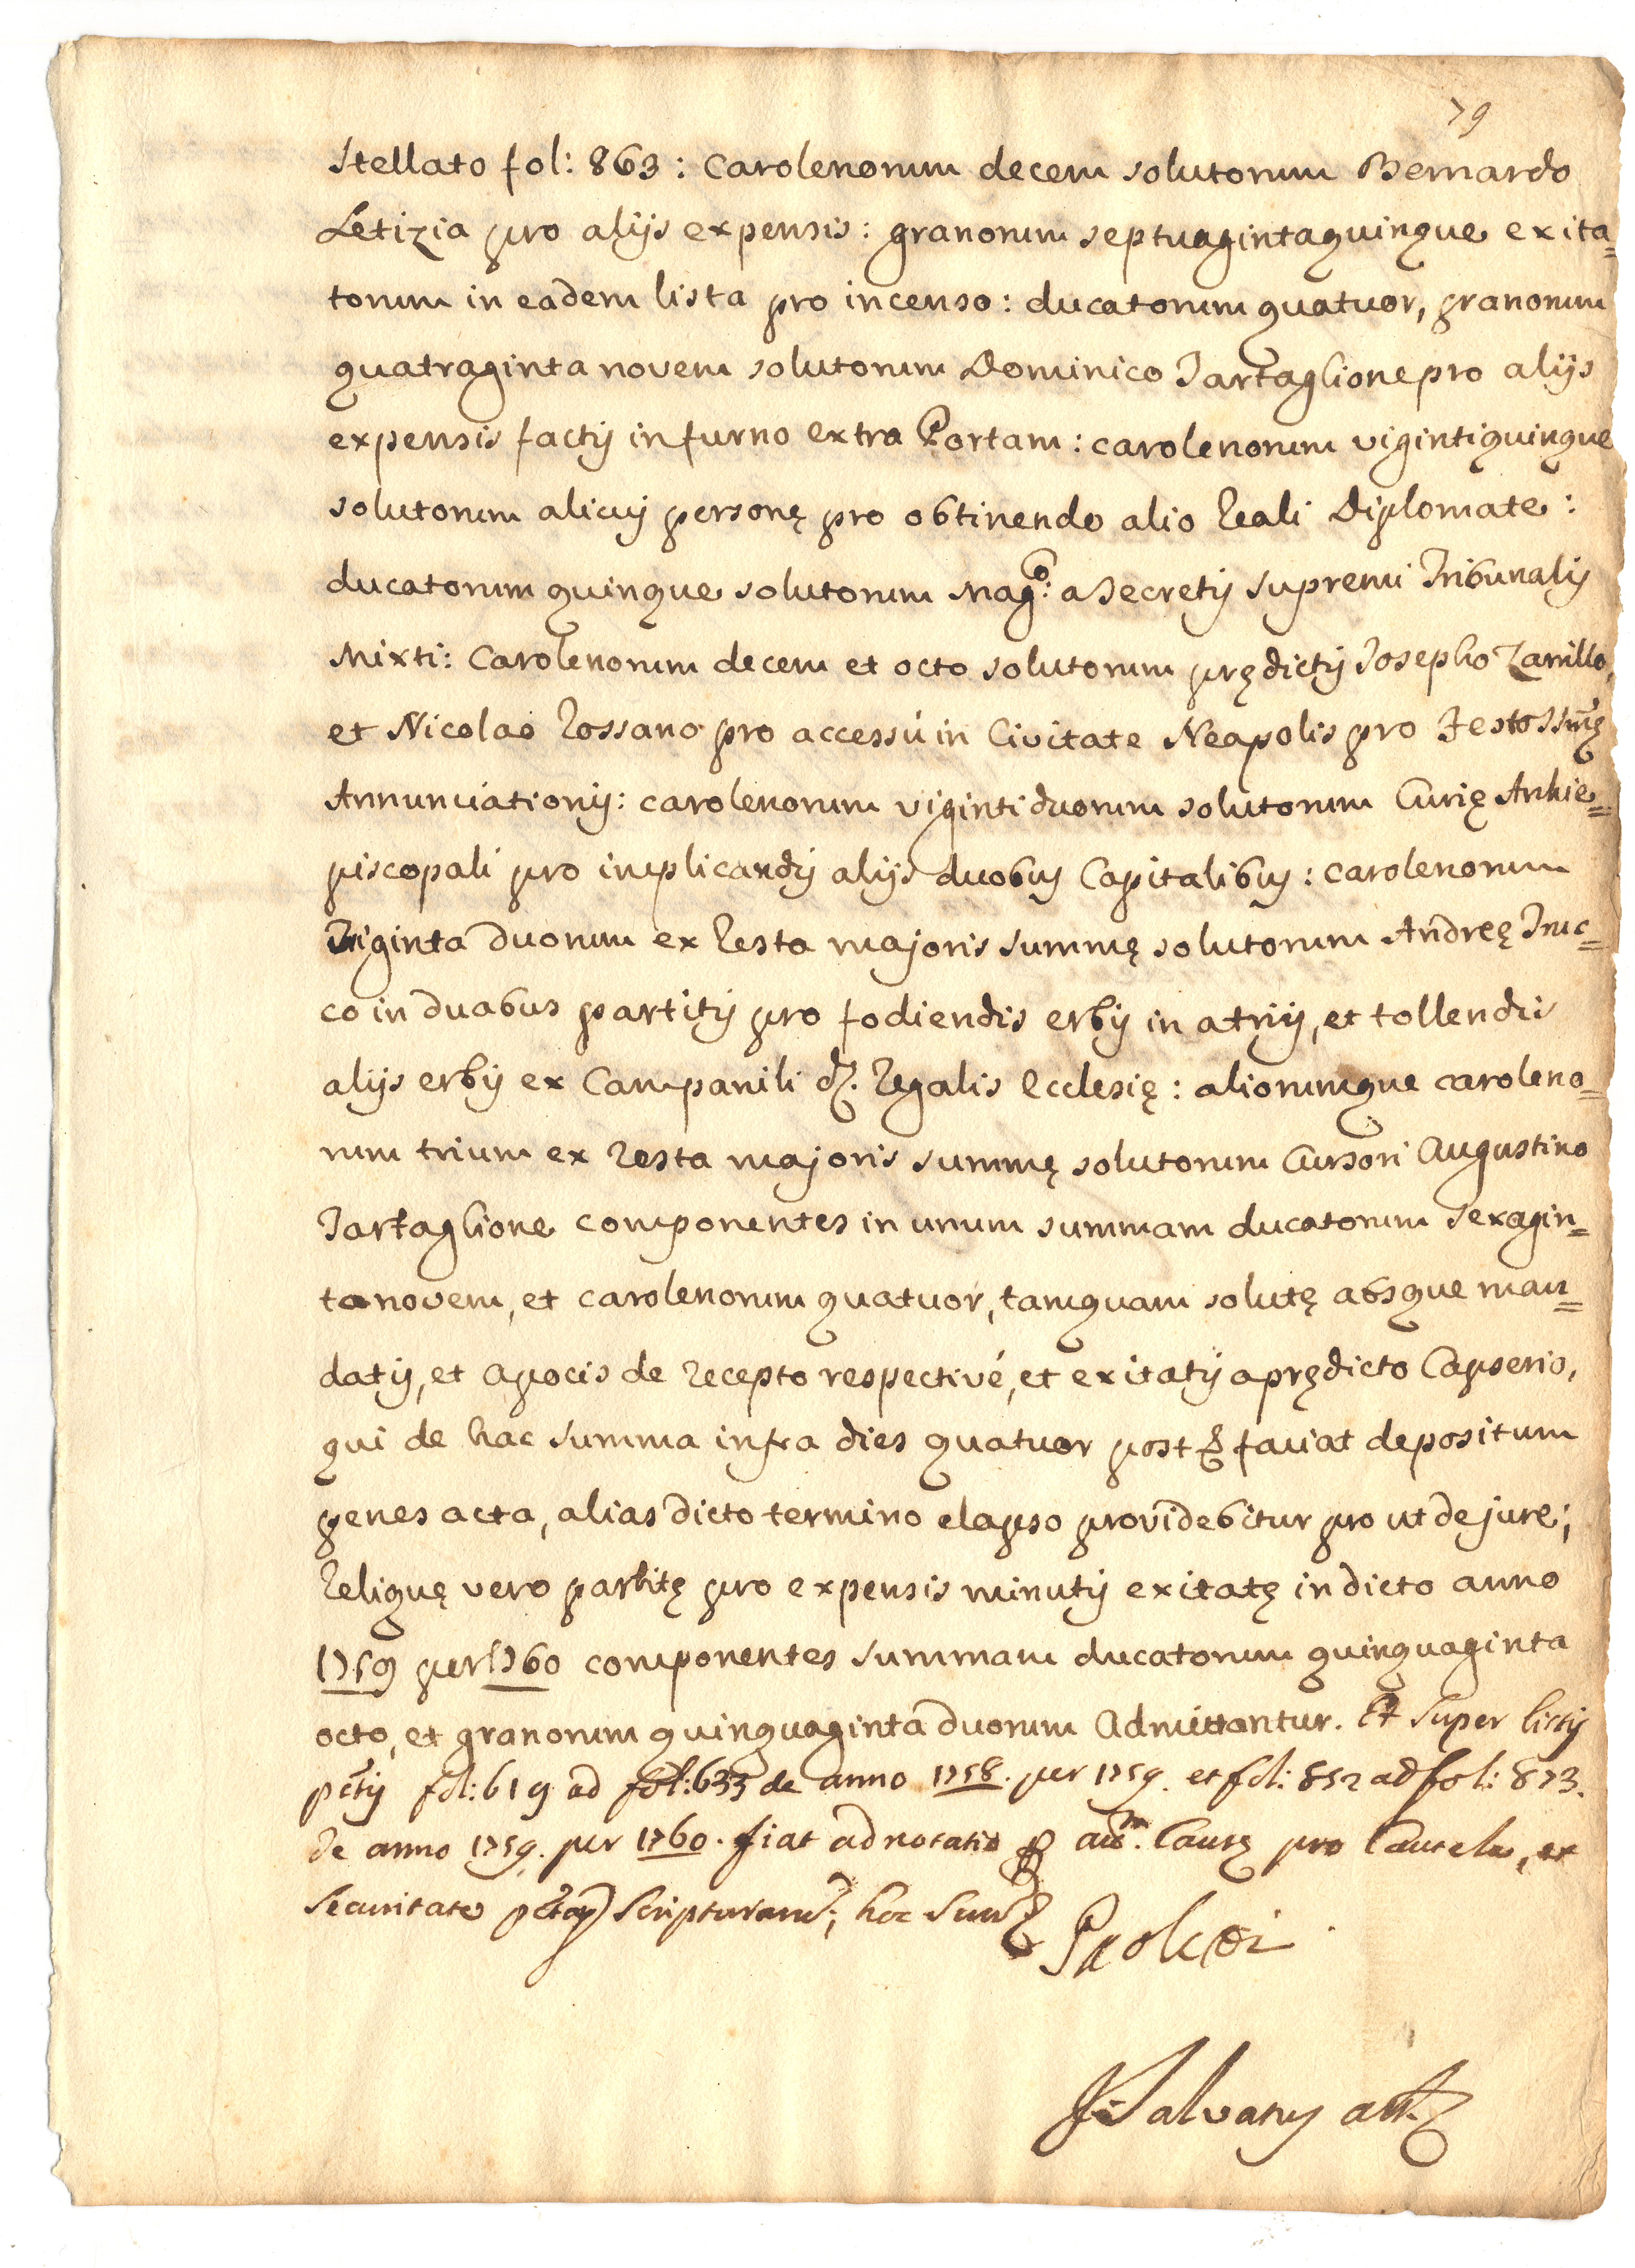 79
Stellato fol: 863: Carolenorum decem solutorum Bernardo
Letizia pro alijs expensis: granorum septuagintaquinque exita=
torum in eadem lista pro incenso: ducatorum quatuor, granorum
quatraginta novem solutorum Dominico Tartaglione pro alijs
expensis factis in furno extra Portam: carolenorum vigintiquinque
solutorum alicui personę pro obtinendo alio Reali Diplomate:
ducatorum quinque solutorum Mag:co a Secretis Supremi Tribunalis
Mixti: Carolenorum decem et octo solutorum prędictis Josepho Zarrillo,
et Nicolao Rossano pro accessú in Civitate Neapolis pro Festo SSmę
Annunciationis: carolenorum vigintiduorum solutorum Curię Arhie=
piscopali pro implicandis alijs duobus Capitalibus: carolenorum
Triginta duorum ex Resta majoris summę solutorum Andreę Truc=
co in duabus partitis pro fodiendis erbis in atrijs, et tollendis
alijs erbis ex Campanili d. Regalis Ecclesię: aliorumque caroleno=
rum trium ex Resta majoris summę solutorum Cursori Augustino
Tartaglione componentes in unum summam ducatorum sexagin=
ta novem, et carolenorum quatuor, tamquam solutę absque man=
datis, et apocis de recepto respectivé, et exitatis a prędicto Capserio,
qui de hac summa infra dies quatuor post faciat depositum
penes acta, alias dicto termino elapso providebitur pro ut de jure;
Reliquę vero partitę pro expensis minutis exitatę in dicto anno
1759 per 1760 componentes summam ducatorum quinquaginta
octo, et granorum quinquaginta duorum Admittantur. Et super listis
pctis fol: 619 ad fol: 633 de anno 1758. per 1759. et fol: 852 ad fol: 873.
de anno 1759. per 1760. fiat adnotatio p Causę pro Cautela, et
securitate scripturarum; hoc suum

Salvatus